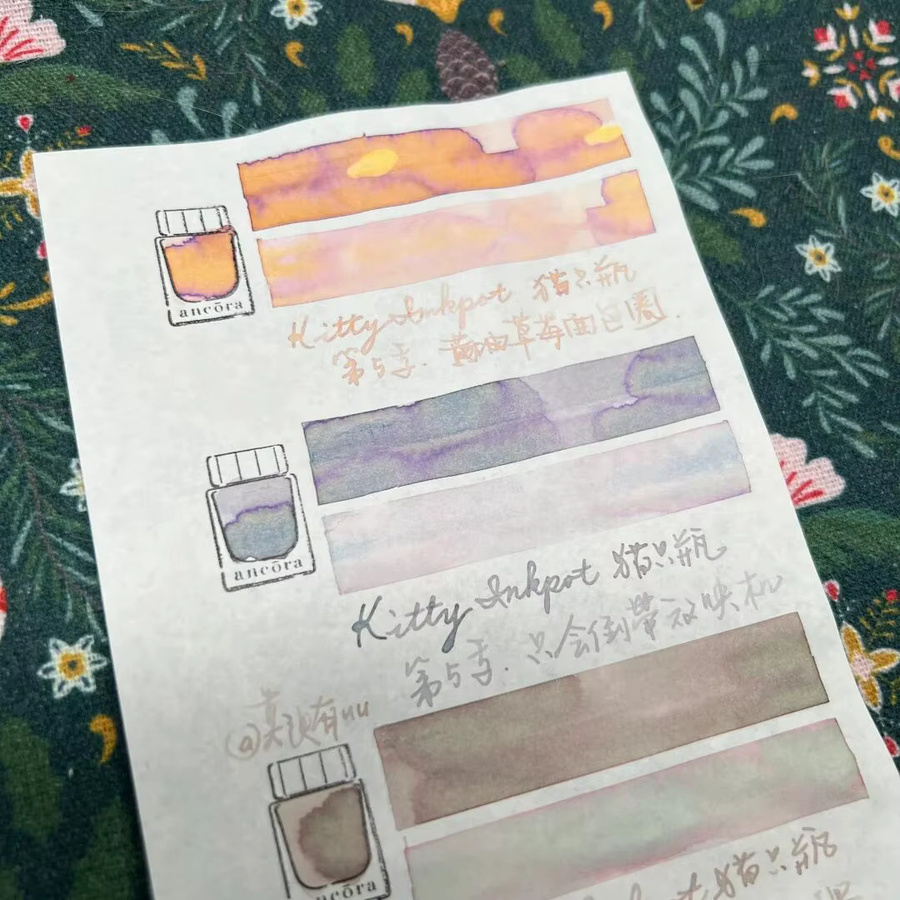 ancōra
Kitty Inkpot 猫只瓶
第5季. 黄油草莓面包圈.
ancōra
Kitty Inkpot 猫只瓶
第5季. 只会倒带放映机
ancōra
Inkpot 猫只瓶